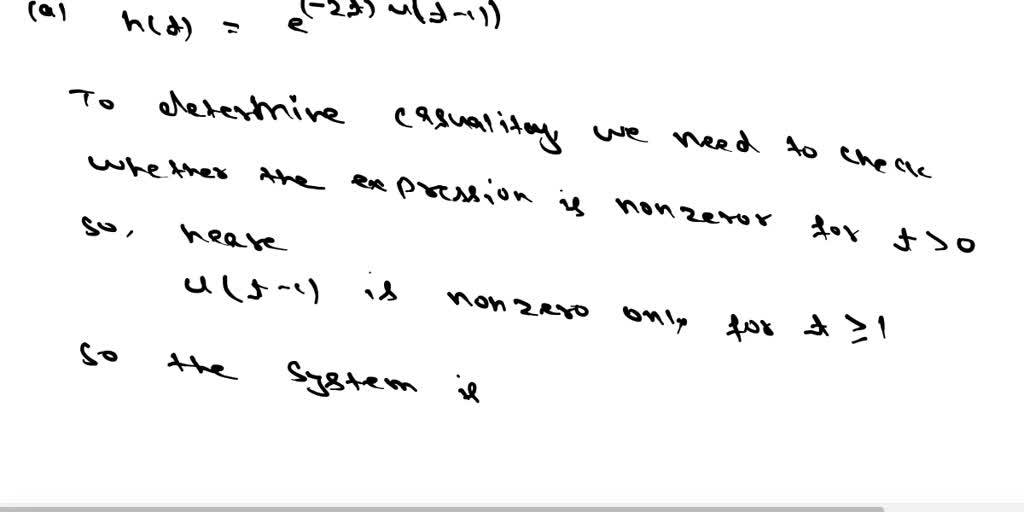 (a) h(t) = e^(-2t) u(t-1))
To determine casuality we need to check
whether the expression is nonzeror for t>0
so, heare
u(t-1) is nonzero only for t ≥ 1
so the system is